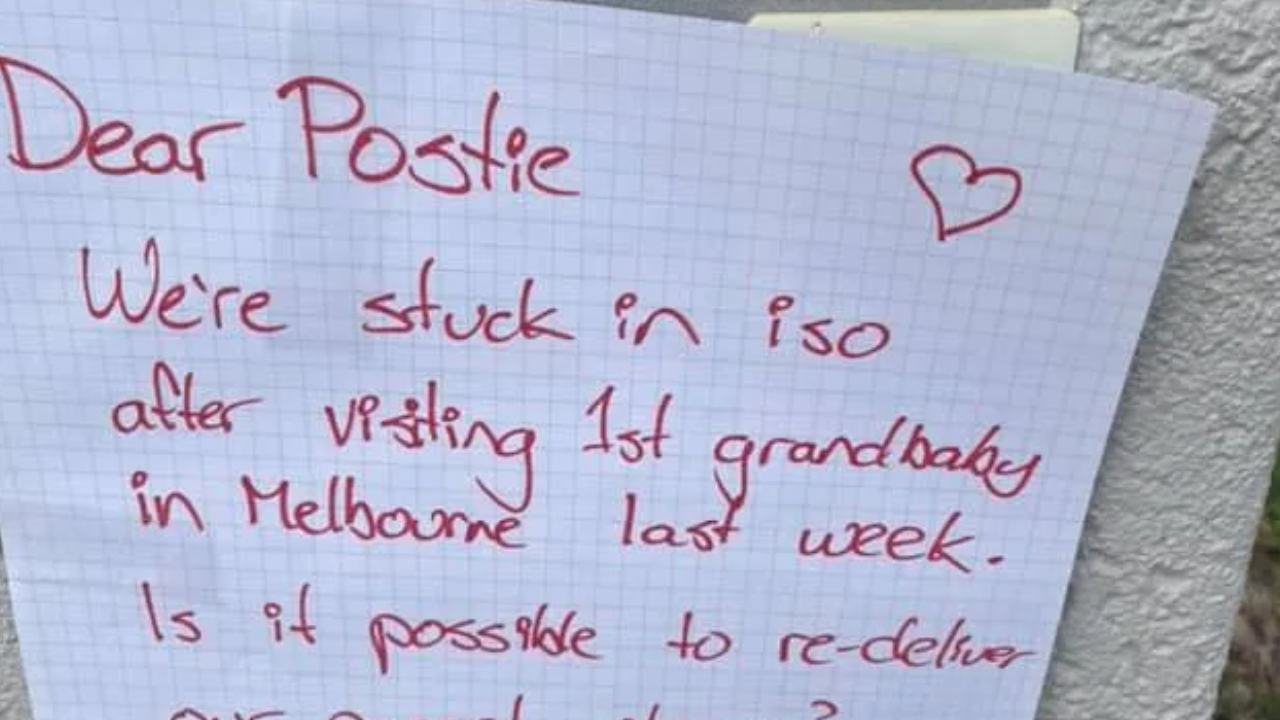 Dear Postie
We're stuck in iso
after visiting 1st grandbaby
in Melbourne last week.
Is it possible to re-deliver
our